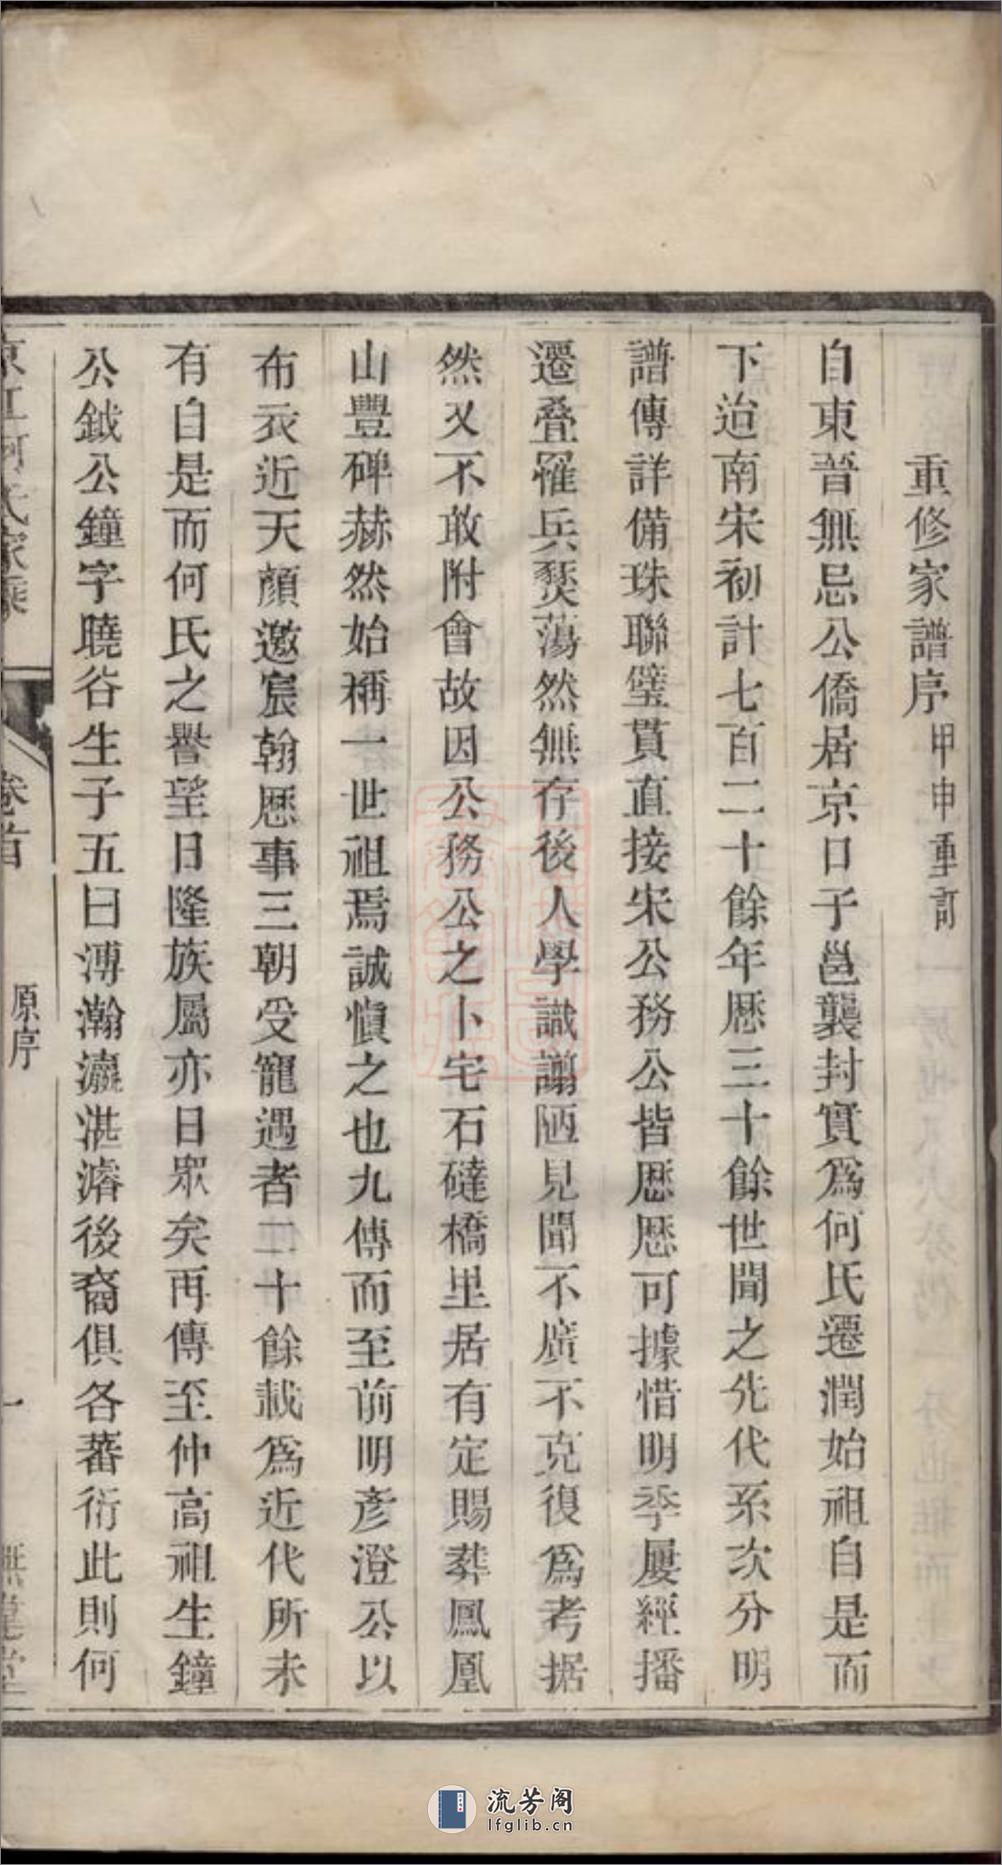 重修家譜序 甲申重訂
自東晉無忌公僑居京口子邕襲封實爲何氏遷潤始祖自是而
下迨南宋初計七百二十餘年歷三十餘世聞之先代系次分明
譜傳詳備珠聯璧貫直接宋公務公皆歷歷可據惜明季屢經播
遷叠罹兵燹蕩然無存後人學識譾陋見聞不廣不克復爲考据
然又不敢附會故因公務公之卜宅石䃮橋里居有定賜葬鳳凰
山豐碑赫然始稱一世祖焉誠愼之也九傳而至前明彥澄公以
布衣近天顏邀宸翰歷事三朝受寵遇者二十餘載爲近代所未
有自是而何氏之譽望日隆族屬亦日眾矣再傳至仲高祖生鐘
公鉞公鐘字曉谷生子五曰溥瀚瀛湛濬後裔俱各蕃衍此則何
京江何氏家乘 卷首 原序 一
流芳阁
lfglib.cn